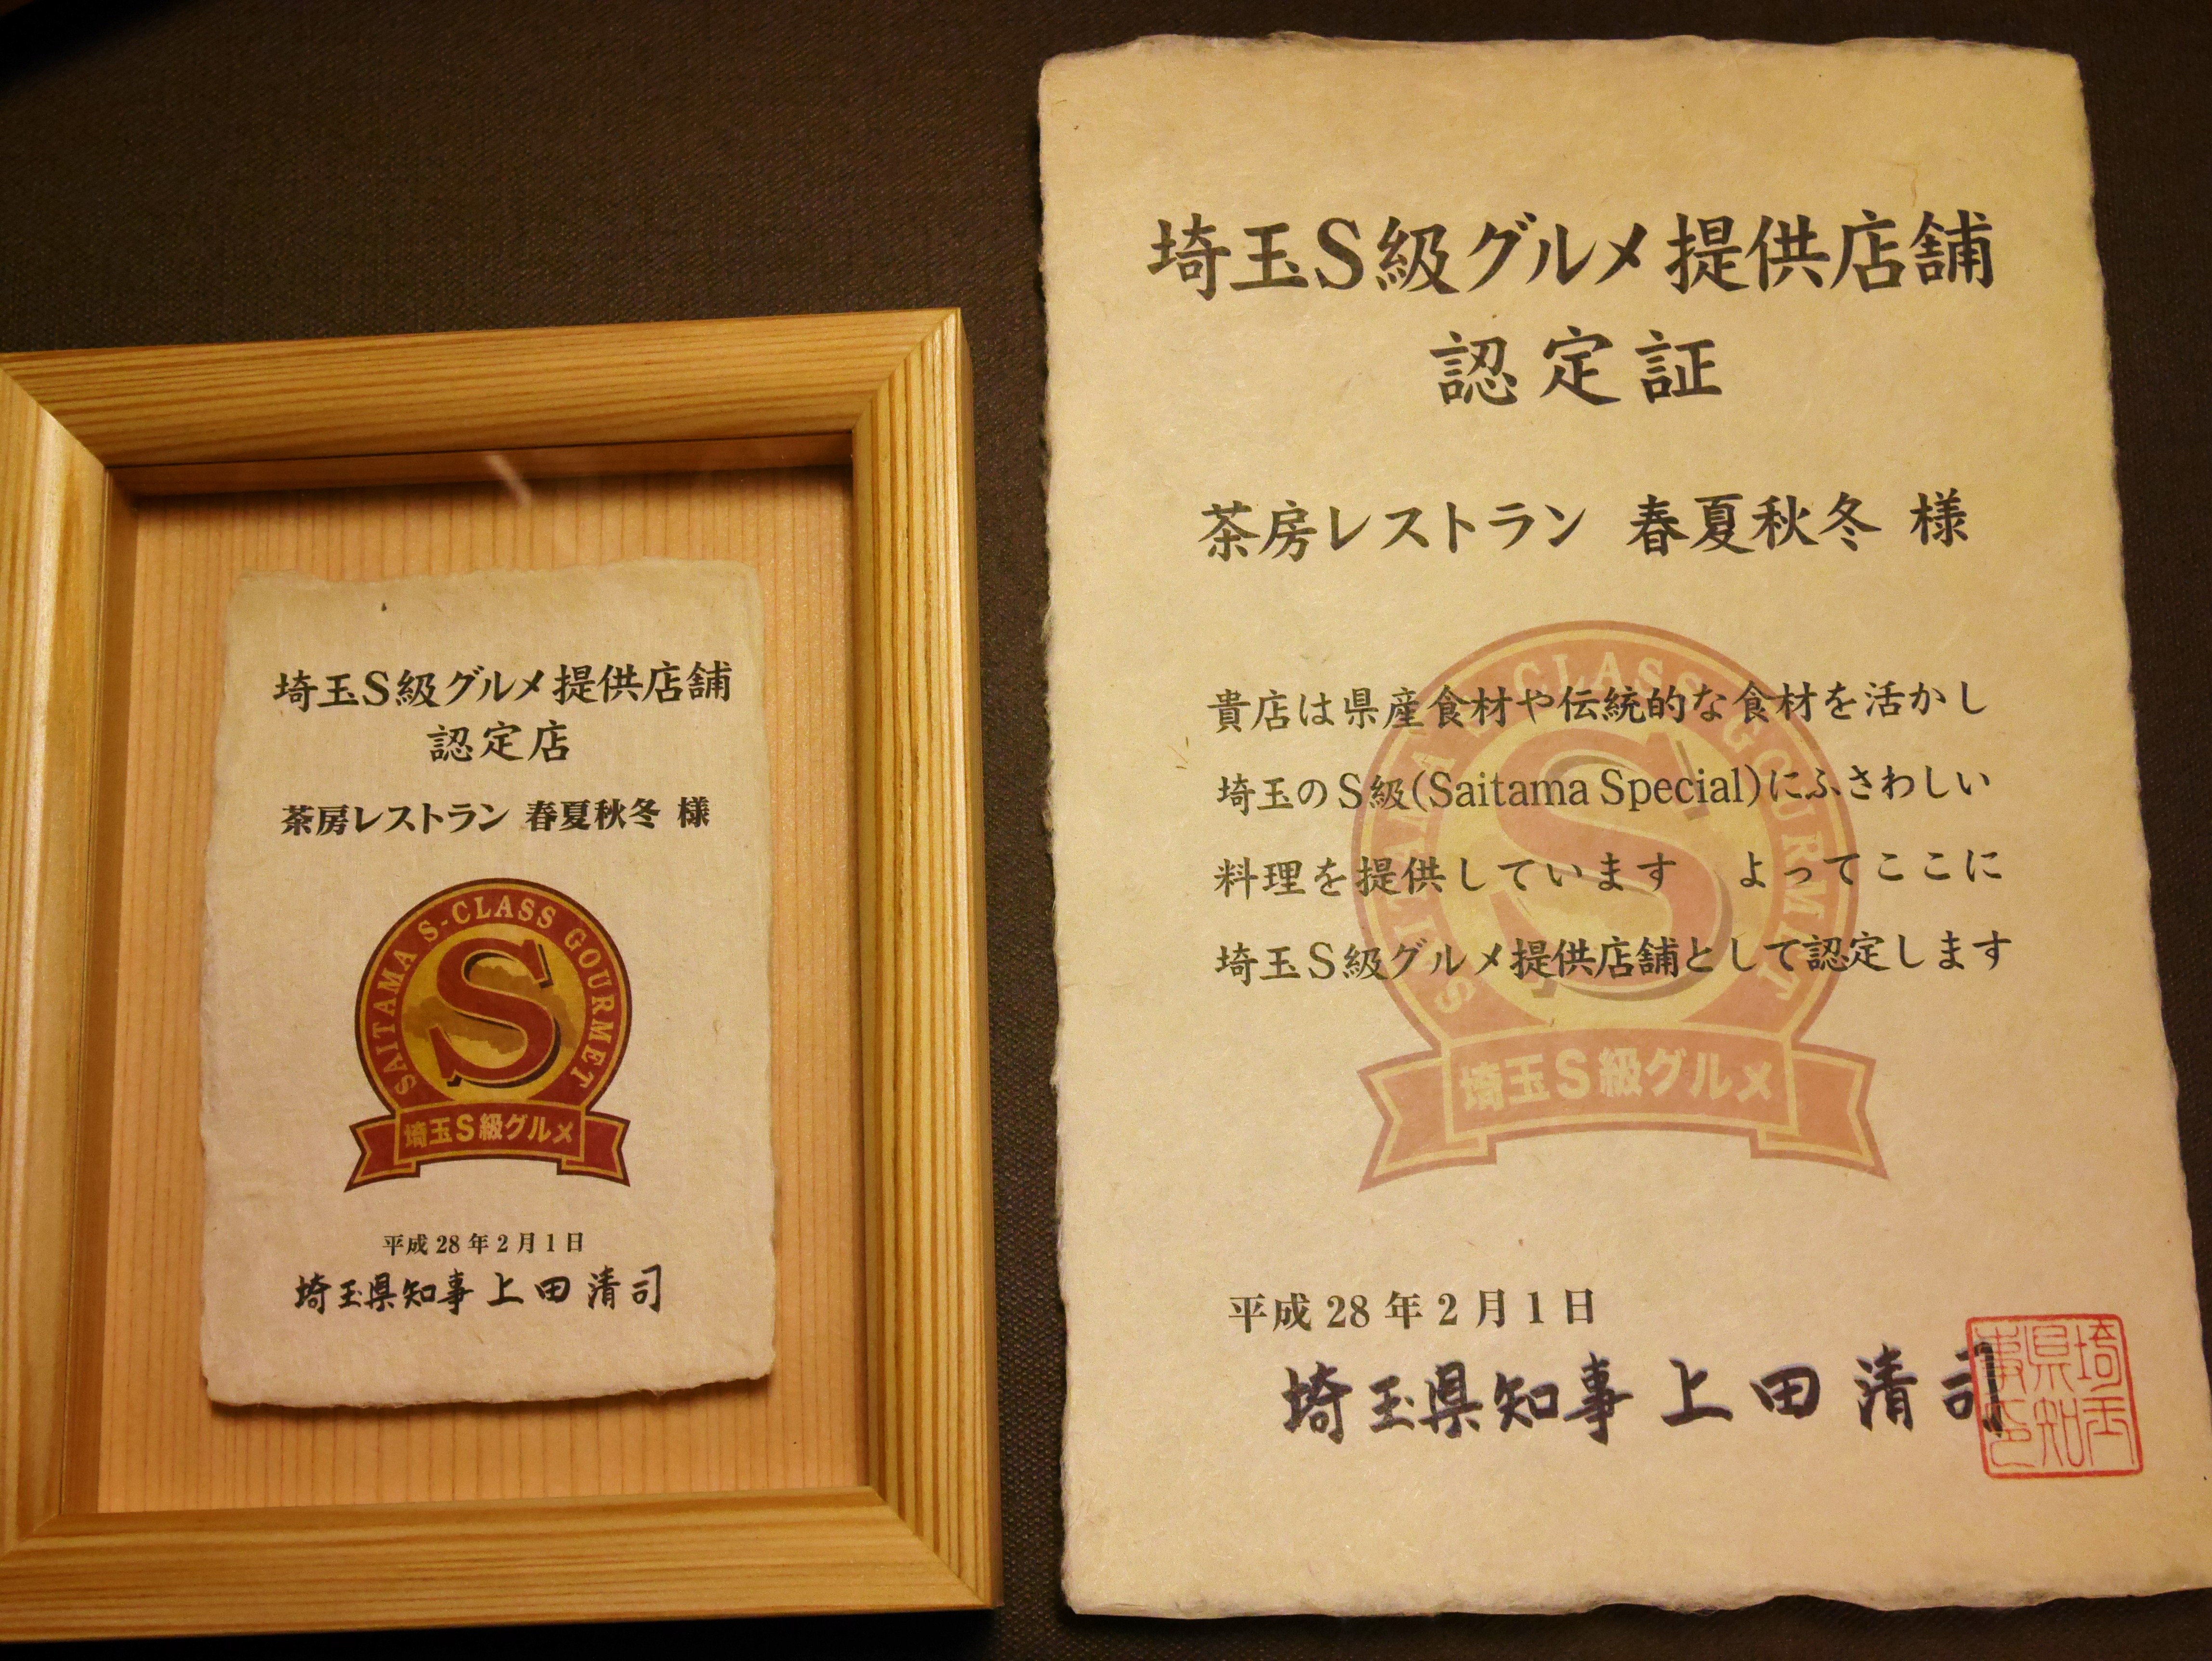 埼玉S級グルメ提供店舗
認定店
茶房レストラン 春夏秋冬 様
SAITAMA S-CLASS GOURMET
S
埼玉S級グルメ
平成28年2月1日
埼玉県知事 上田清司
埼玉S級グルメ提供店舗
認定証
茶房レストラン 春夏秋冬 様
貴店は県産食材や伝統的な食材を活かし
埼玉のS級(Saitama Special)にふさわしい
料理を提供しています よってここに
埼玉S級グルメ提供店舗として認定します
SAITAMA S-CLASS GOURMET
S
埼玉S級グルメ
平成28年2月1日
埼玉県知事 上田清司
埼玉県知事印